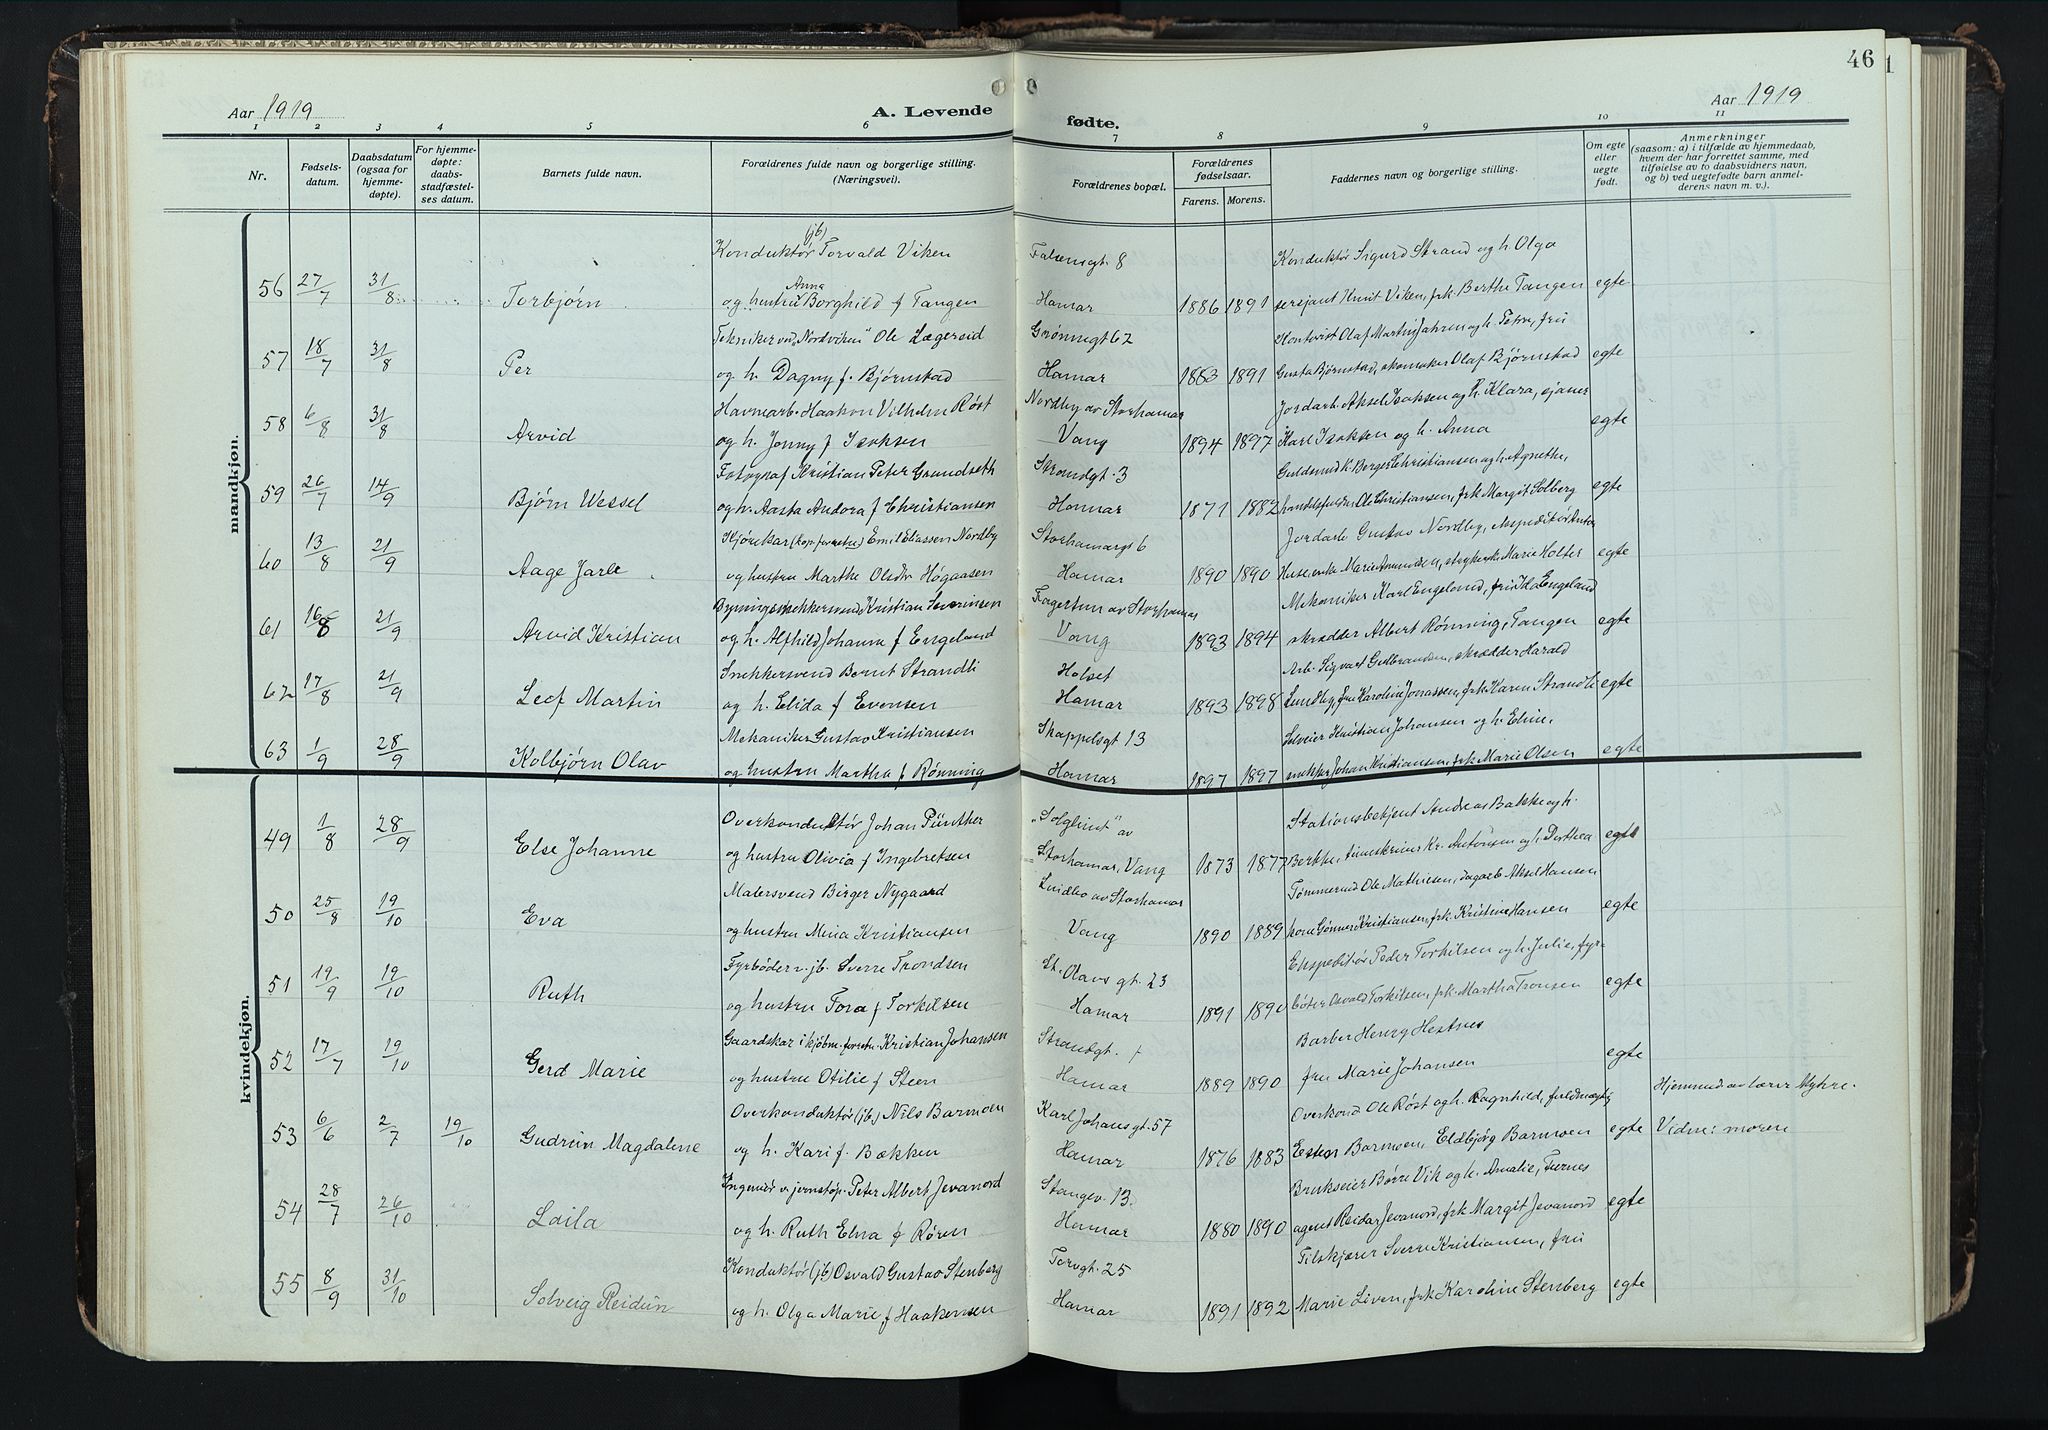 46
1
Aar 1919
A. Levende
fødte.
Aar 1919
1 2 3 4 5 6 7 8 9 10 11
Nr.
Fødsels-
datum.
Daabsdatum
(ogsaa for
hjemme-
døpte).
For hjemme-
døpte:
daabs-
stadfæstel-
ses datum.
Barnets fulde navn.
Forældrenes fulde navn og borgerlige stilling.
(Næringsvei).
Forældrenes bopæl.
Forældrenes
fødselsaar.
Farens. Morens.
Faddernes navn og borgerlige stilling.
Om egte
eller
uegte
født.
Anmerkninger
(saasom: a) i tilfælde av hjemmedaab,
hvem der har forrettet samme, med
tilføielse av to daabsvidners navn,
og b) ved uegtefødte barn anmel-
derens navn m. v.).
mandkjøn.
(jb)
Konduktør Torvald Viken Falsensgt. 8 Konduktør Sigurd Strand og h. Olga
Anna
56 27/7 31/8 Torbjørn og hustru Borghild f Tangen Hamar 1886 1891 sersjant Knut Viken, frk Berthe Tangen egte
Tekniker ved "Nordviken" Ole Lægreid Grønnegt 62 Kontorist Olaf Martin Jahren og h. Petra, fru
57 18/7 31/8 Per og h. Dagny f. Bjørnstad Hamar 1883 1891 Gusta Bjørnstad, skomaker Olaf Bjørnstad egte
Havnarb. Haakon Vilhelm Røst Nordby av Storhamar Jordarb. Aksel Isaksen og h. Klara, ejaner
58 6/8 31/8 Arvid og h. Jenny f Isaksen Vang 1894 1897 Karl Isaksen og h. Anna egte
Fotograf Kristian Peter Grundseth Strandgt. 3 Guldsmed K. Berger Christiansen og h. Agnethe,
59 26/7 14/9 Bjørn Wessel og h. Aasta Andora f Christiansen Hamar 1871 1882 Ole Christiansen, frk Margit Solberg egte
Kjørekar (kop. forretn.) Emil Eliassen Nordby Storhamargt 6 Jordarb Gustav Nordby, ekspeditør Anton
60 13/8 21/9 Aage Jarle og hustru Marthe Olsdtr Høgaasen Hamar 1890 1890 Huse, enke Marie Amundsen, Marie Holter egte
Bygningssnekkersvend Kristian Severinsen Fagertun av Storhamar Mekaniker Karl Engeland, fru Ida Engeland
61 16/8 21/9 Arvid Kristian og h. Alfhild Johanna f Engeland Vang 1893 1894 skrædder Albert Rønning, Tangen egte
Snekkersvend Bernt Strandli Holset Arb. Sigvart Gulbrandsen, skrædder Harald
62 17/8 21/9 Leif Martin og h. Elida f Evensen Hamar 1893 1898 Lundby, fru Karoline Jonassen, frk Karen Strandli egte
Mekaniker Gustav Kristiansen Skappelsgt 13 Kristian Johansen og h. Eline,
63 1/9 28/9 Kolbjørn Olav og hustru Martha f Rønning Hamar 1897 1897 snekker Johan Kristiansen, frk Marie Olsen egte
kvindekjøn.
Overkonduktør Johan Pünther "Solglimt" av Stationsbetjent Andreas Bakke og h.
49 1/8 28/9 Else Johanne og hustru Olivia f Ingebretsen Storhamar, Vang 1873 1877 Berthe, timeskriver Kr. Antonsen og h. Dorthea egte
Malersvend Birger Nygaard Lindbo av Storhamar Tømmermd Ole Mathiesen, dagarb Aksel Hansen
50 25/8 19/10 Eva og hustru Mina Kristiansen Vang 1890 1889 Gunner Kristiansen, frk. Kristine Hansen egte
Fyrbøder v. jb. Sverre Trondsen St. Olavs gt. 23 Ekspeditør Peder Torkilsen og h. Julie, fyr-
51 19/9 19/10 Ruth og hustru Tora f Torkilsen Hamar 1891 1890 bøter Osvald Torkilsen, frk. Martha Tronsen egte
Gaardskar i kjøbm. forretn. Kristian Johansen Strandgt. Barber Henry Hestnes
52 17/7 19/10 Gerd Marie og hustru Otilie f Steen Hamar 1889 1890 fru Marie Johansen egte
Overkonduktør (jb) Nils Barmoen Karl Johansgt. 57 Overkond Ole Røst og h. Ragnhild, fuldmegtig Hjemmed av lærer Myhre.
53 6/6 2/7 19/10 Gudrun Magdalene og h. Kari f. Bækken Hamar 1876 1883 Esten Barmoen, Eldbjørg Barmoen egte Vidne: moren
Ingeniør v jernstøp. Peter Albert Jevanord Stangev. 13. Brukseier Børre Vik og h. Amalie, Furnes
54 28/7 26/10 Laila og h. Ruth Elna f Røren Hamar 1880 1890 agent Reidar Jevanord, frk Margit Jevanord egte
Konduktør (jb) Osvald Gustav Stenberg Torvgt. 25 Tilskjærer Sverre Kristiansen, fru
55 8/9 31/10 Solveig Reidun og h. Olga Marie f Haakensen Hamar 1891 1892 Marie Liven, frk Karoline Stenberg egte